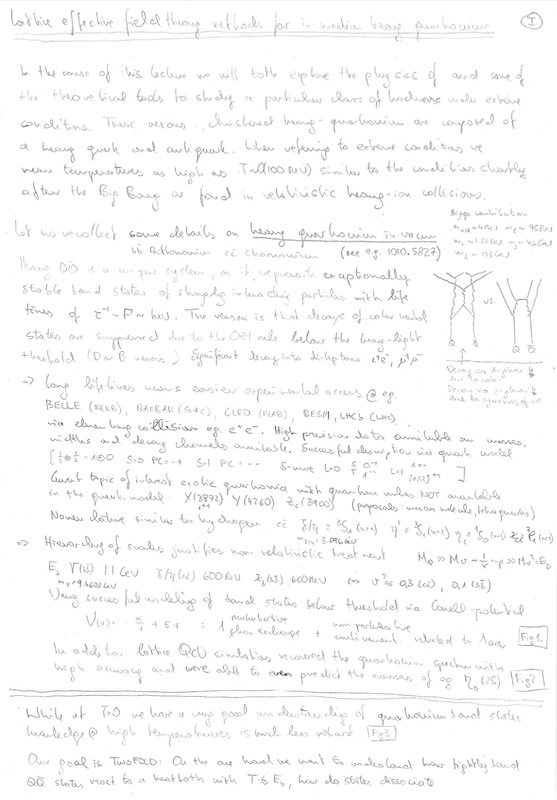 Lattice effective field theory methods for in-medium heavy quarkonium
I
In the course of this lecture we will both explore the physics of and some of
the theoretical tools to study a particular class of hadrons under extreme
conditions. These mesons, christened heavy-quarkonium are composed of
a heavy quark and antiquark. When referring to extreme conditions we
mean temperatures as high as T~O(100 MeV) similar to the conditions shortly
after the Big Bang or found in relativistic heavy-ion collisions.
Higgs contribution
Let us recollect some details on heavy quarkonium in vacuum
bb̄ Bottomonium cc̄ charmonium (see e.g. 1010.5827)
Heavy QQ̄ is a unique system, as it represents exceptionally
stable bound states of strongly interacting particles with life
times of τ⁻¹ ~ Γ ~ keV. The reason is that decays of color neutral
states are suppressed due to the OZI rule below the heavy-light
threshold (D or B mesons.) Significant decay into di-leptons e⁺e⁻, μ⁺μ⁻
vs.
Q Q̄ Q Q̄
Decay via 1-gluon
due to color
Decay via 2-gluon
due to
⇒ Long lifetimes means easier experimental access @ eg.
BELLE (KEKB), BARBAR (SLAC), CLEO, BESIII, LHCb (LHC)
via clean collisions eg. e⁺e⁻. High precision data available on masses,
widths and decay channels available. Successful description via quark model
S=0 S=1 S-wave L=0 L=1
Current topic of interest exotic quarkonia with quantum numbers NOT available
in the quark model. X(3872) Y(4260) Zc(3900) (proposals: meson molecule, tetraquarks)
Nomenclature similar to hydrogen cc̄
⇒ Hierarchy of scales justifies non-relativistic treatment M_Q >> Mv ~ 1/r ~ p >> Mv² ~ E_b
E_b Υ(bb̄) 1.1 GeV J/ψ(cc̄) 600 MeV 600 MeV v² ≈ 0,3 (cc̄), 0,1 (bb̄)
Very successful modeling of bound states below threshold via Cornell-potential
V(r) = -α/r + σr = 1 perturbative gluon exchange + non-perturbative confinement. related to
Fig 1.
In addition lattice QCD simulations recovered the quarkonium spectrum with
high accuracy and were able to even predict the masses of eg. η_b (2S)
Fig 2.
While at T=0 we have a very good understanding of quarkonium bound states
knowledge @ high temperatures is much less robust
Fig 3.
Our goal is TWOFOLD: On the one hand we want to understand how tightly bound
QQ̄ states react to a heatbath with T≲E_b, how do states dissociate